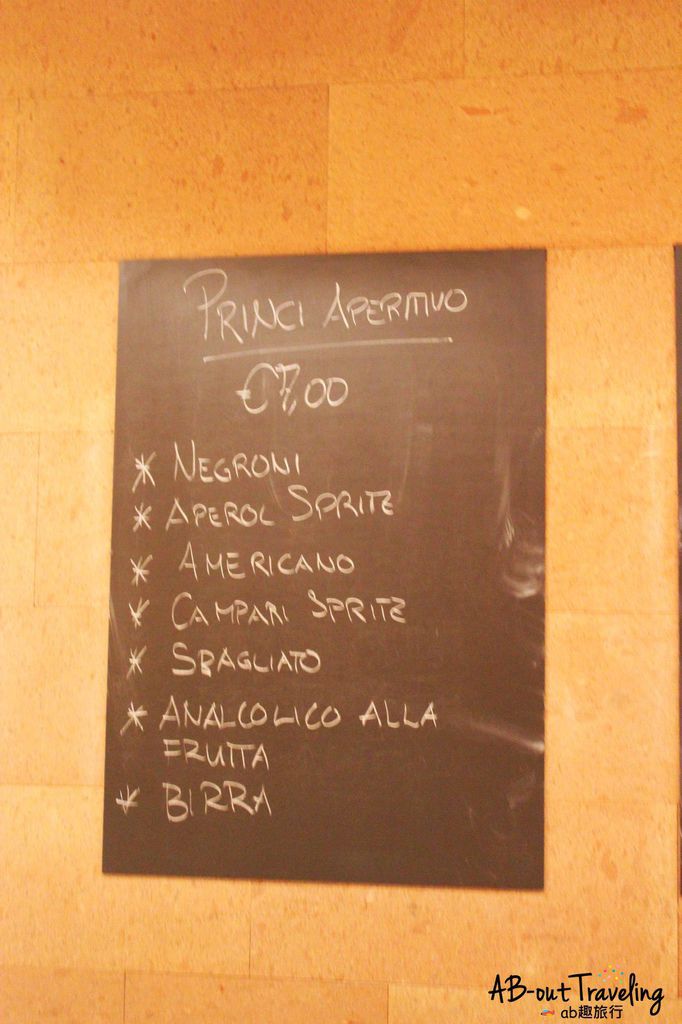 PRINCI APERITIVO
€7,00
* NEGRONI
* APEROL SPRITE
* AMERICANO
* CAMPARI SPRITE
* SBAGLIATO
* ANALCOLICO ALLA
FRUTTA
* BIRRA
AB-out Traveling
ab趣旅行